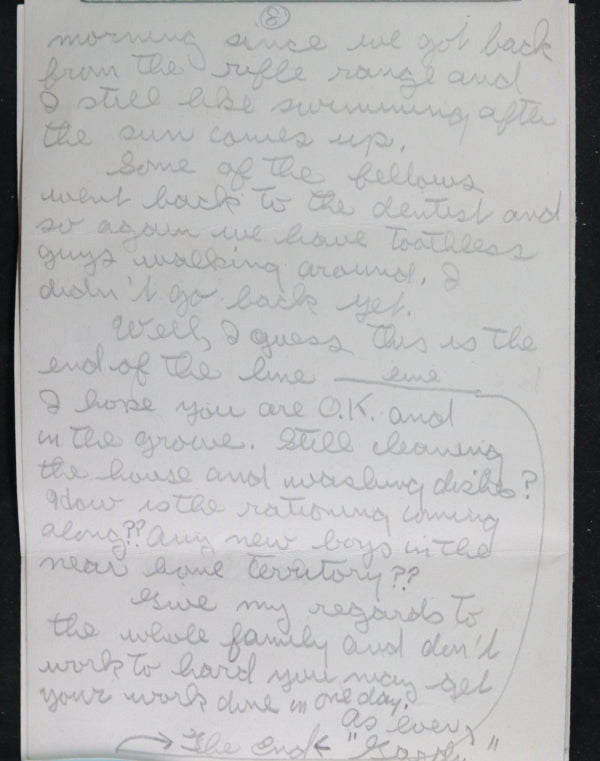 8
morning since we got back
from the rifle range and
I still like swimming after
the sun comes up.
Some of the fellows
went back to the dentist and
so again we have toothless
guys walking around. I
didn't go back yet.
Well, I guess this is the
end of the line line
I hope you are O.K. and
in the groove. Still cleaning
the house and washing dishes?
How is the rationing coming
along?? Any new boys in the
near home territory??
Give my regards to
the whole family and don't
work to hard you may get
your work done in one day.
As ever,
→ The End ←